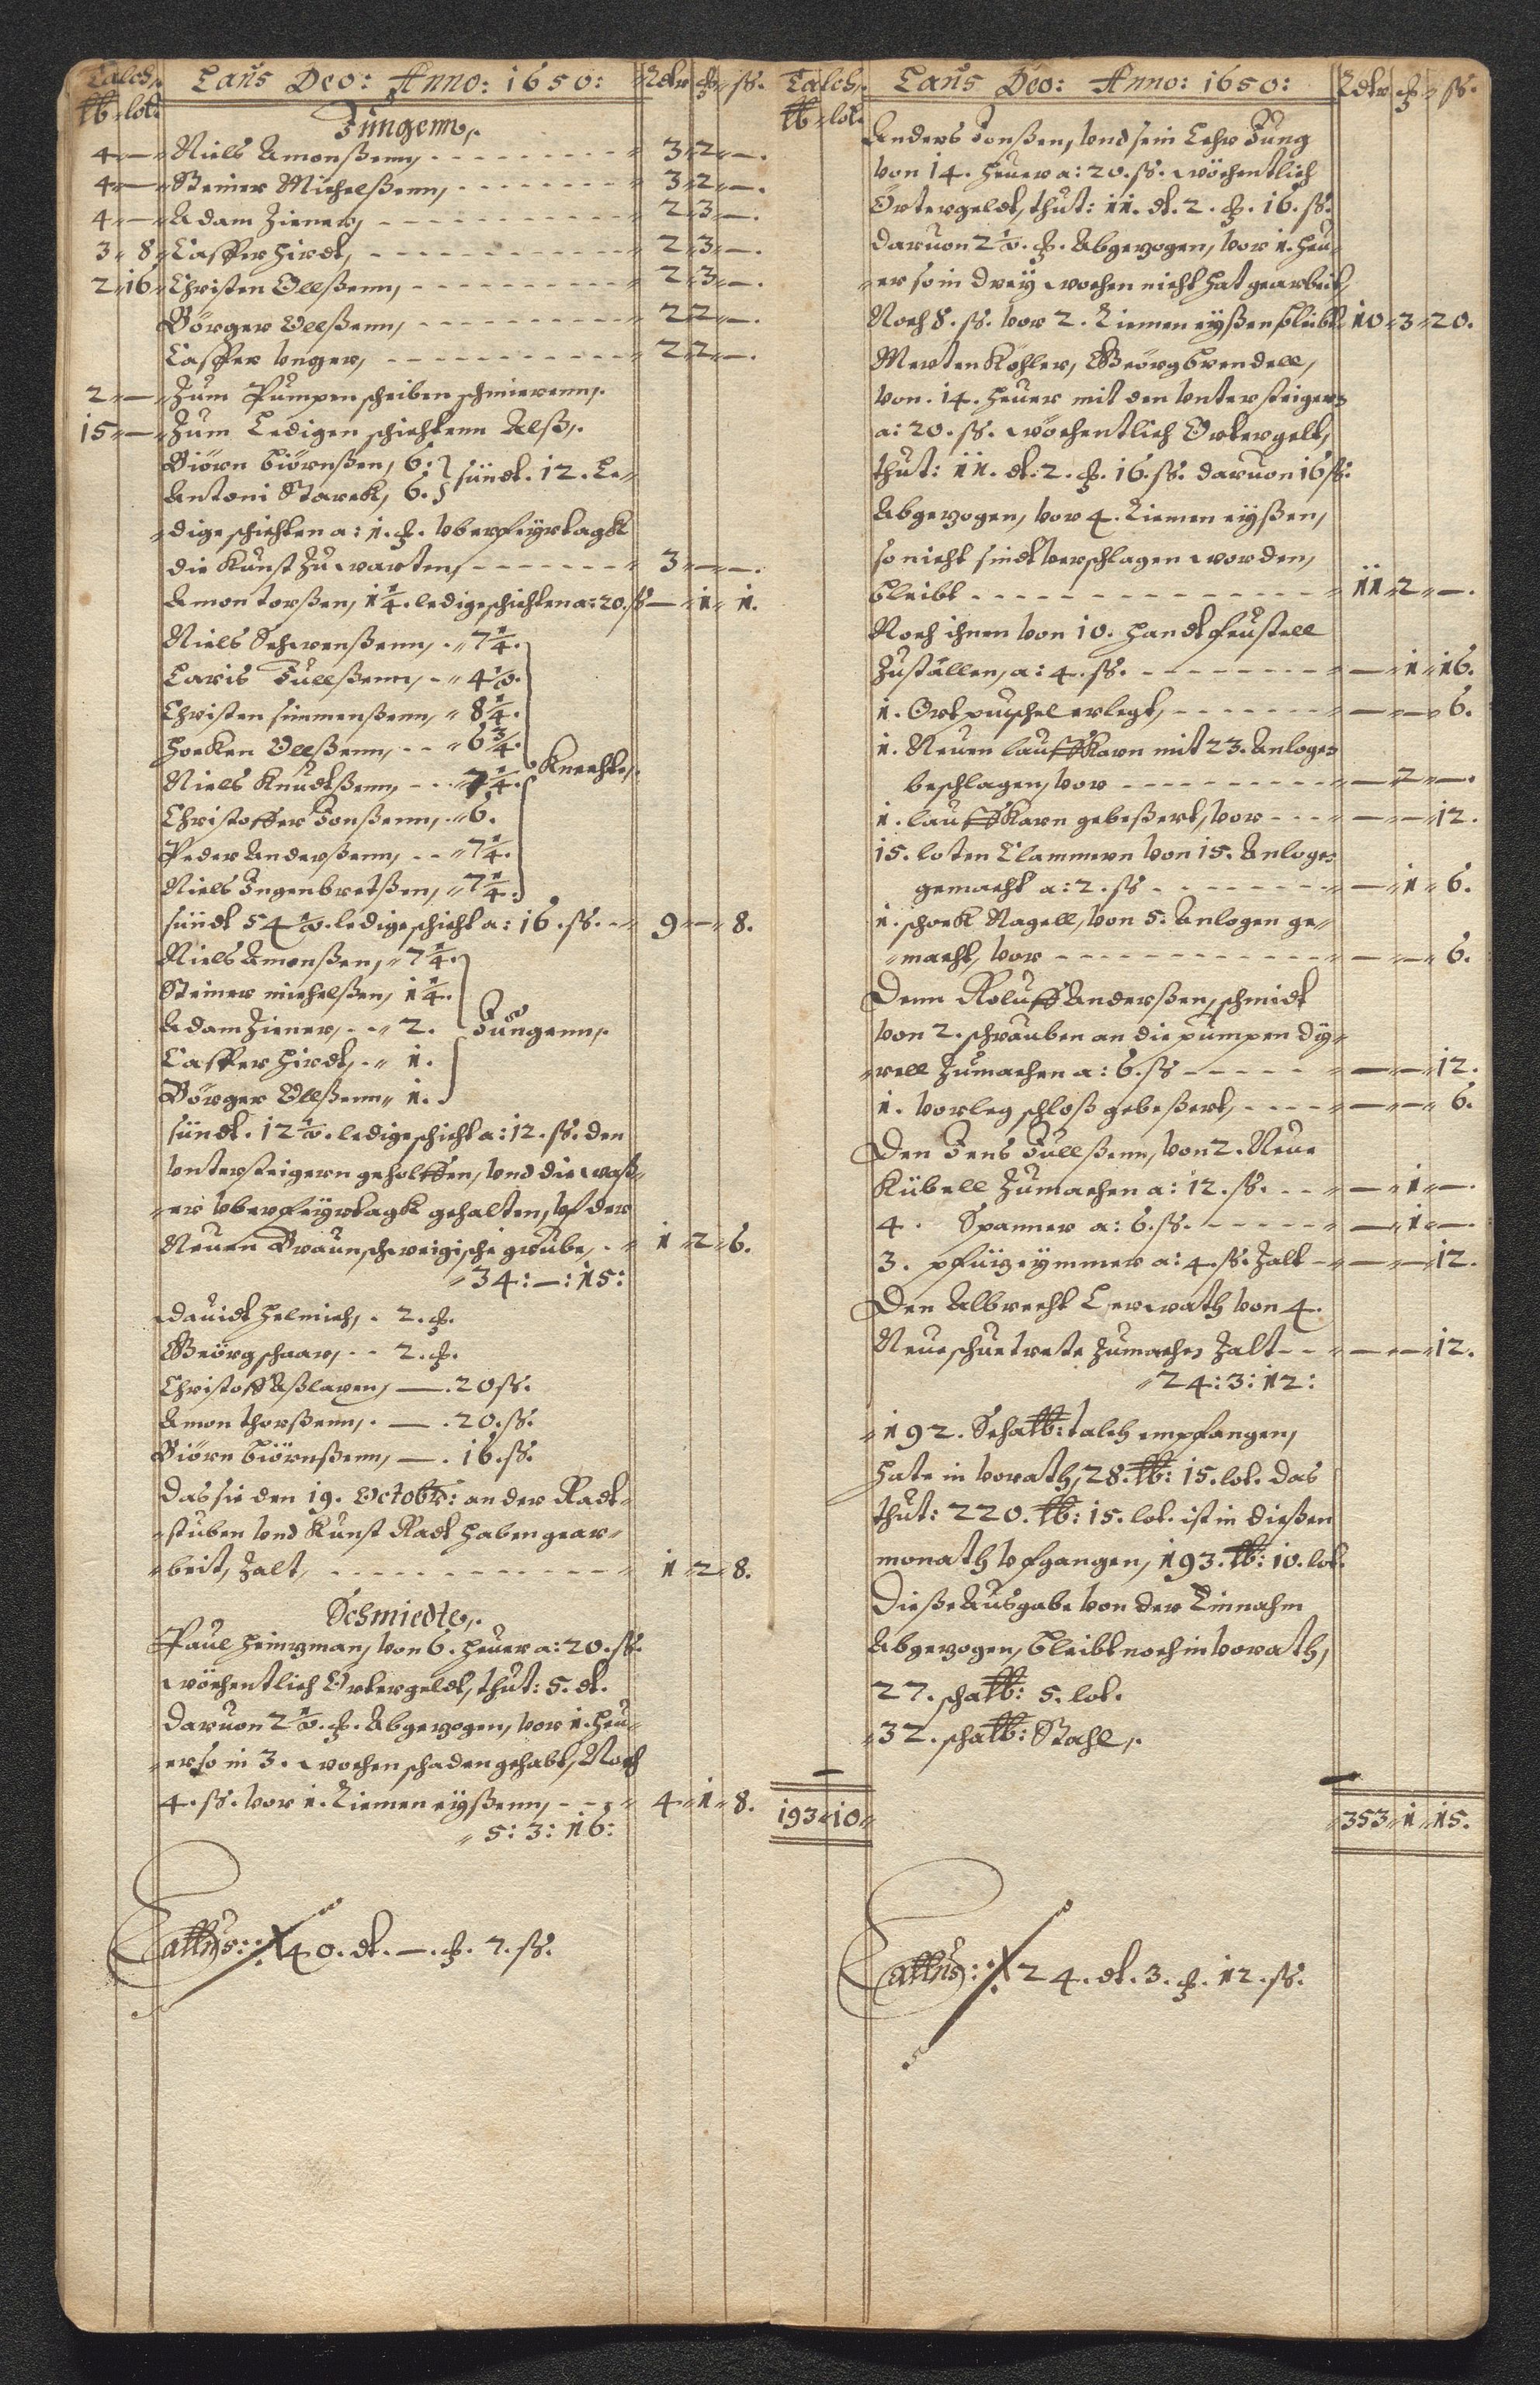 Talch,. Laus Deo: Anno: 1650: Rdtr ꝑ ß.
℔ lot.
Jungenn,.
4 — Niels Amonßenn, 3 2 —.
4 — Steiner Michelßenn, 3 2 —.
4 — Adam Ziener, 2 3 —.
3 8 Casster Hirdt, 2 3 —.
2 16 Christen Ollßenn, 2 3 —.
Börger Ollßenn, 2 2 —.
Casster Unger, 2 2 —.
2 — Zum Pumpen scheiben schmierenn,.
15 — Zum Ledigen schichtenn Alß,.
Biörn Biörnßen, 6. } sündt. 12. Le-
Antoni Starck, 6.
dige schichten a: 1. ꝑ. vber feyrtagk
die Kunst zu warten, 3 — —.
Amon torßen, 1¼. ledige schichten a: 20. ß — 1 1.
Niels Schwenßenn, 7¼.
Laris Jullßenn, 4½.
Christen simmenßenn, 8¼.
Hocken Ollßenn, 6¾.
Niels Knudtßenn, 7¼. Knechte,.
Christoffer Jonßenn, 6.
Peder Anderßenn, 7¼.
Niels Ingenbretßen, 7¼.
sündt 54½. ledige schicht a: 16. ß. 9 — 8.
Niels Amonßen, 7¼.
Steiner michelßen, 1¼.
Adam Ziener, 2. Jungenn,.
Casster Hirdt, 1.
Börger Ollßenn 1.
sündt. 12½. ledige schicht a: 12. ß. den
Untersteigern geholffen, vnd die waß-
er vber feyrtagk gehalten, vf der
Neuen Braunschweigische grube, 1 2 6.
34: —: 15:
Dauidt Helmich, 2. ꝑ.
Geörg schaar, 2. ꝑ.
Christoff Aßlaren, —. 20 ß.
Amon thorßenn, —. 20. ß.
Biörn Biörnßenn, —. 16. ß.
Das sie den 19. Octobr: an der Radt-
stuben vnd Kunst Radt haben gear-
beit, Zalt, 1 2 8.
Schmiedte,.
Paul Heinzman, von 6. Heuer a: 20. ß.
wöchentlich Ortergeldt, thut: 5. dt.
Daruon 2½. ꝑ. Abgezogen, vor 1. Heu-
er so in 3. wochen schaden gehabt, Noch
4. ß. vor 1. Riemen eyßenn, 4 1 8.
5: 3: 16:
Lattus: 40. dt. —. ꝑ. 7. ß.
Talch,. Laus Deo: Anno: 1650: Rdtr ꝑ ß.
℔ lot.
Anders Jonßen, vnd sein Lehr Jung
von 14. Heuer a: 20. ß. wöchentlich
Örtergeldt, thut: 11. dt. 2. ꝑ. 16. ß.
Daruon 2½. ꝑ. Abgezogen, vor 1. Heu-
er so in drey wochen nicht hat gearbeit,
Noch 8. ß. vor 2. Riemen eyßen, bleibt 10 3 20.
Merten Köhler, Geörg Brendell,
von. 14. Heuer mit den Untersteigern
a: 20. ß. wöchentlich Ortergelt,
thut: 11. dt: 2. ꝑ. 16. ß. daruon 16 ß.
Abgezogen, vor 4. Riemen eyßen,
so nicht sindt verschlagen worden,
bleibt 11 2 —.
Noch ihnen von 10. Handtfeustell
Zuställen, a: 4. ß. — 1 16.
1. Ort puschel erlegt, — — 6.
1. Neuen lauffkarn mit 23. Anlogen
beschlagen, vor — 2 —.
1. lauffkarn gebeßert, vor — — 12.
15. loten Clammern von 15. Anlogen
gemacht a: 2. ß — 1 6.
1. schock Nagell, von 5. Anlogen ge-
macht, vor — — 6.
Denn Roluff Anderßen, schmidt
von 2. schrauben an die pumpen dy-
rell Zumachen a: 6. ß — — 12.
1. vorleg schloß gebeßert, — — 6.
Den Jens Jullßenn, von 2. Neue
Kübell Zumachen a: 12. ß. — 1 —.
4. Spanner a: 6. ß. — 1 —.
3. pfüzeymmer a: 4. ß. Zalt — — 12.
Den Albrecht Lerwath von 4.
Neue schuetrete Zumachen Zalt — — 12.
24: 3: 12:
192. Scha℔: talch empfangen,
Hate in vorath, 28. ℔: 15. lot. das
thut: 220. ℔: 15. lot. ist in dießen
monath vfgangen, 193. ℔: 10. lot.
Dieße Ausgabe von der Einnahm
Abgezogen, bleibt noch in vorath,
27. scha℔: 5. lot.
32. scha℔: Stahl,.
193 10 353 1 15.
Lattus: 24. dt. 3. ꝑ. 12. ß.